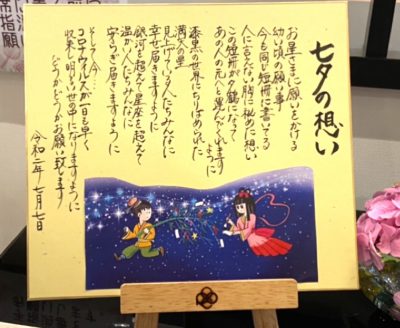 七夕の想い
お星さまに願いをかける
幼い頃の願い事
今も同じ短冊に書いてる
人に言えない胸に秘めた想い
この短冊が夕鶴になって
あの人の元へと運んでくれますように
漆黒の世界にちりばめられた
満天の星
見上げている人たちみんなに
幸せ届きますように
銀河を超えて星座を超えて
温かい人たちみんなに
安らぎ届きますように
そして今
コロナウィルスが一日も早く
収束し明るい世の中になりますように
どうかどうかお願い致します
令和二年 七月七日